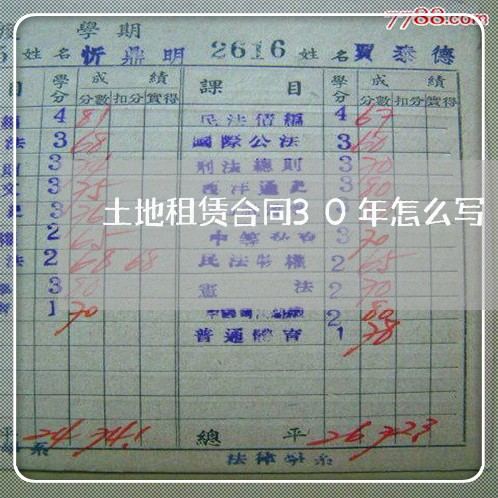 7788.com
學期
姓名 忻鼎明 2616 姓名 賈泰德
目 學分 成績 課目 學分 成績
分數 扣分 實得 分數 扣分 實得
4 81 民法債編 4 67
法 3 68 國際公法 3 60
3 刑法總則 3 70
3 75 西洋通史 3 80
土地租赁合同30年怎么写
2 65 3 70
法 2 68 68 民法物權 2 65
3 80 憲法 2 70
1 70 2 80
普通體育 1 78
24 74.1 總平 26 72.3
系 法律學系